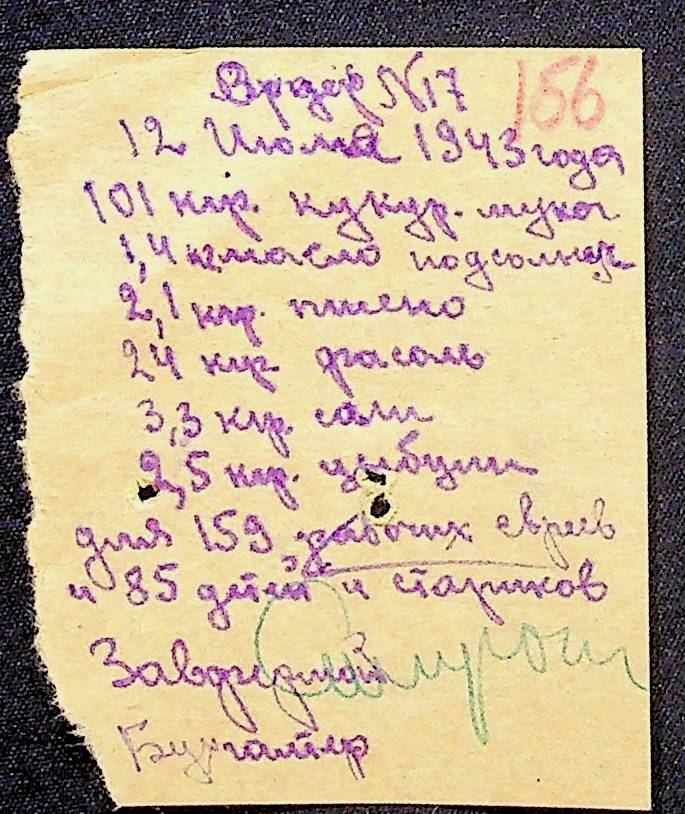 Ордер №17 156
12 Июля 1943 года
101 кгр. кукур. мука
1,4 кг масло подсолнух
2,1 кгр. пшено
24 кгр фасоль
3,3 кгр. соли
2,5 кгр. цыбули
для 159 рабочих евреев
и 85 детей и стариков
Бухгалтер